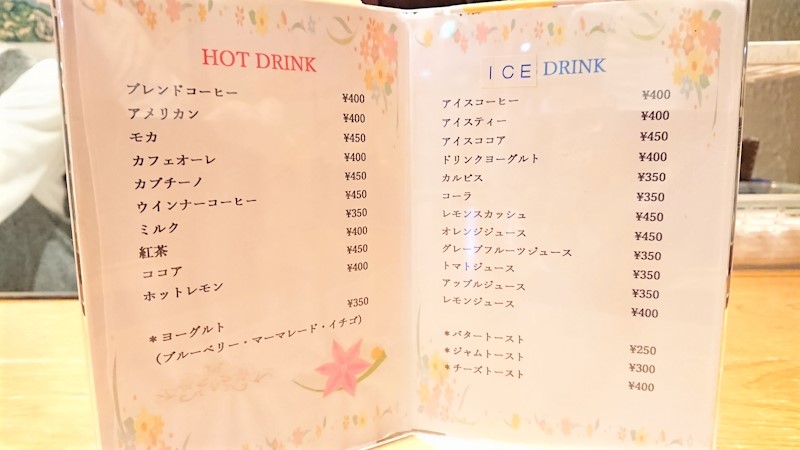 HOT DRINK
ブレンドコーヒー ¥400
アメリカン ¥400
モカ ¥450
カフェオーレ ¥400
カプチーノ ¥450
ウインナーコーヒー ¥450
ミルク ¥350
紅茶 ¥400
ココア ¥450
ホットレモン ¥400
＊ヨーグルト ¥350
（ブルーベリー・マーマレード・イチゴ）
ICE DRINK
アイスコーヒー ¥400
アイスティー ¥400
アイスココア ¥450
ドリンクヨーグルト ¥400
カルピス ¥350
コーラ ¥350
レモンスカッシュ ¥450
オレンジジュース ¥450
グレープフルーツジュース ¥350
トマトジュース ¥350
アップルジュース ¥350
レモンジュース ¥400
＊バタートースト ¥250
＊ジャムトースト ¥300
＊チーズトースト ¥400